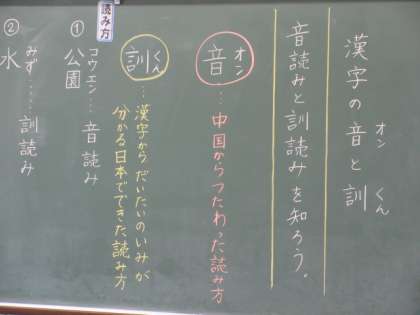 漢字の音と訓
オン
くん
音読みと訓読みを知ろう。
オン
音…中国からつたわった読み方
くん
訓…漢字からだいたいのいみが
分かる日本でできた読み方
読み方
①
コウエン…音読み
公園
②
みず……訓読み
水